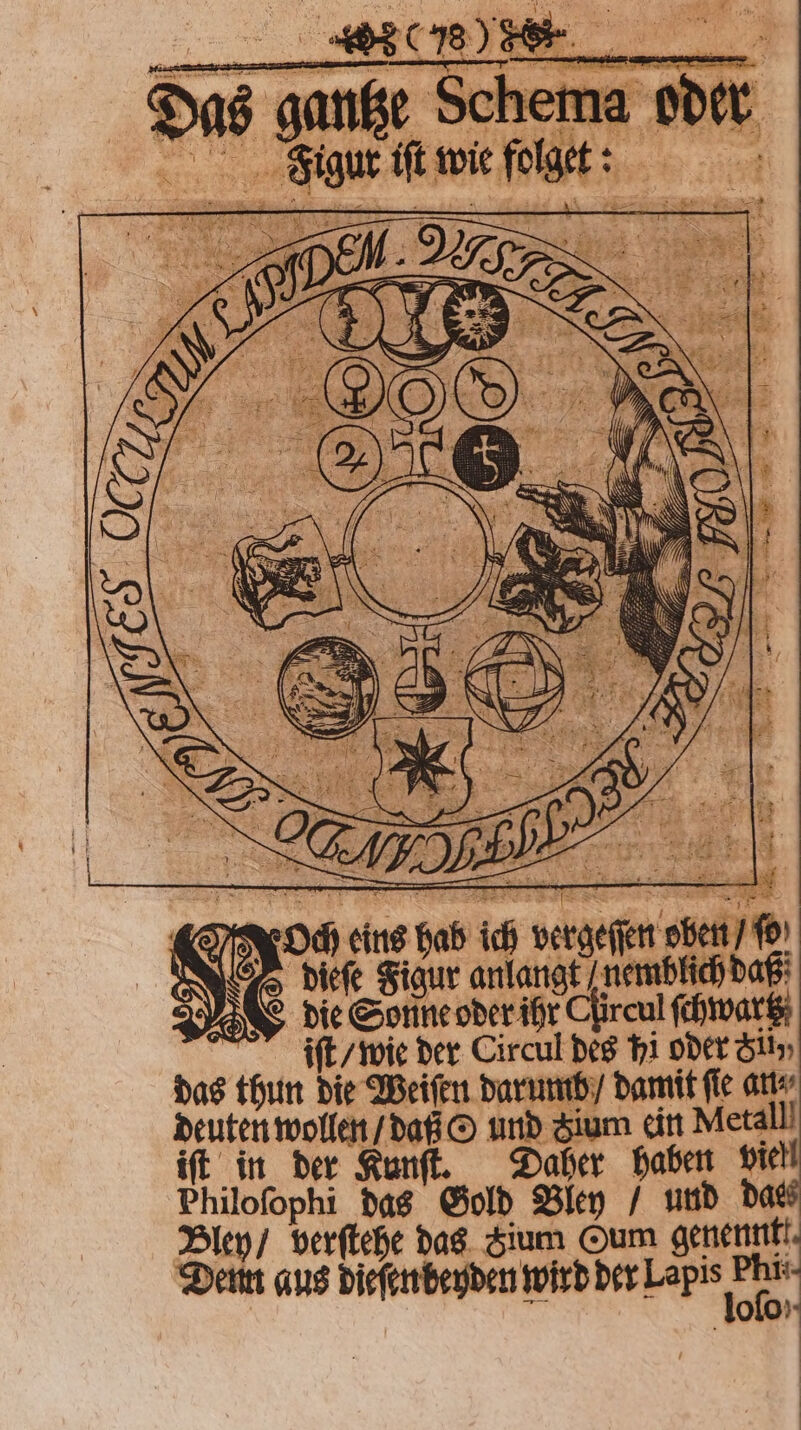 (78)
Das gantze Schema oder
Figur iſt wie folget:
VISITA INTERIORA TERRÆ RECTIFICANDO INVENIES OCCULTUM LAPIDEM.
NOch eins hab ich vergeſſen oben / ſo
dieſe Figur anlangt / nemblich daß
die Sonne oder ihr Circul ſchwartz
iſt / wie der Circul des ♄i oder ♁ii,
das thun die Weiſen darumb / damit ſie an-
deuten wollen / daß ☉ und ♁ium ein Metall
iſt in der Kunſt. Daher haben viel
Philoſophi das Gold Bley / und das
Bley / verſtehe das ♁ium ☉um genennt.
Denn aus dieſen beyden wird der Lapis Phi-
loſo-